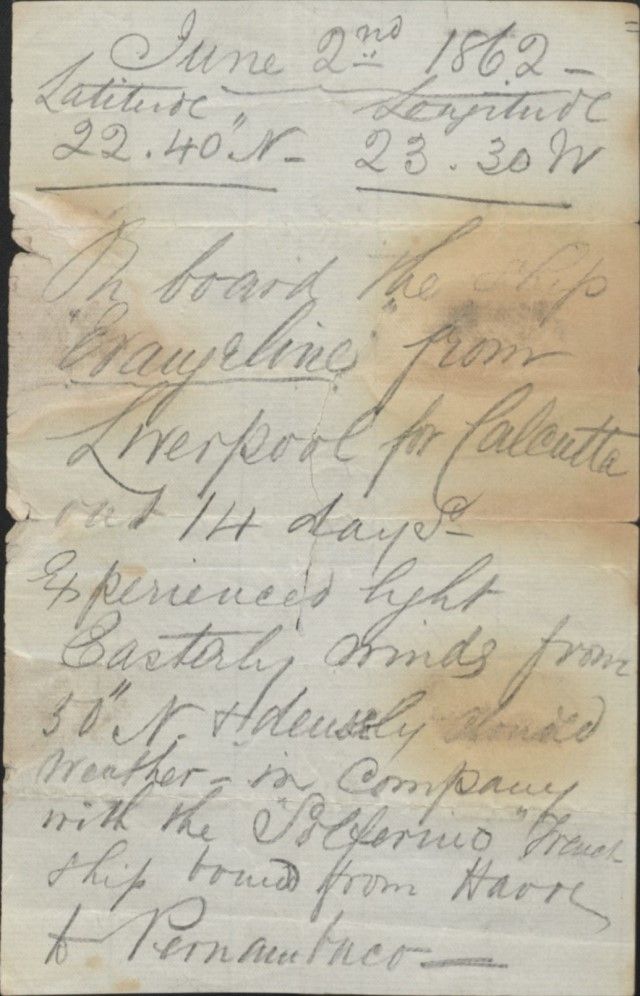 June 2nd 1862 –
Latitude Longitude
22.40" N – 23.30 W
On board the ship
"Evangeline" from
Liverpool for Calcutta
out 14 days –
Experienced light
Easterly winds from
30" N. & densely clouded
weather – in Company
with the "Solferino" French
ship bound from Havre
to Pernambuco —